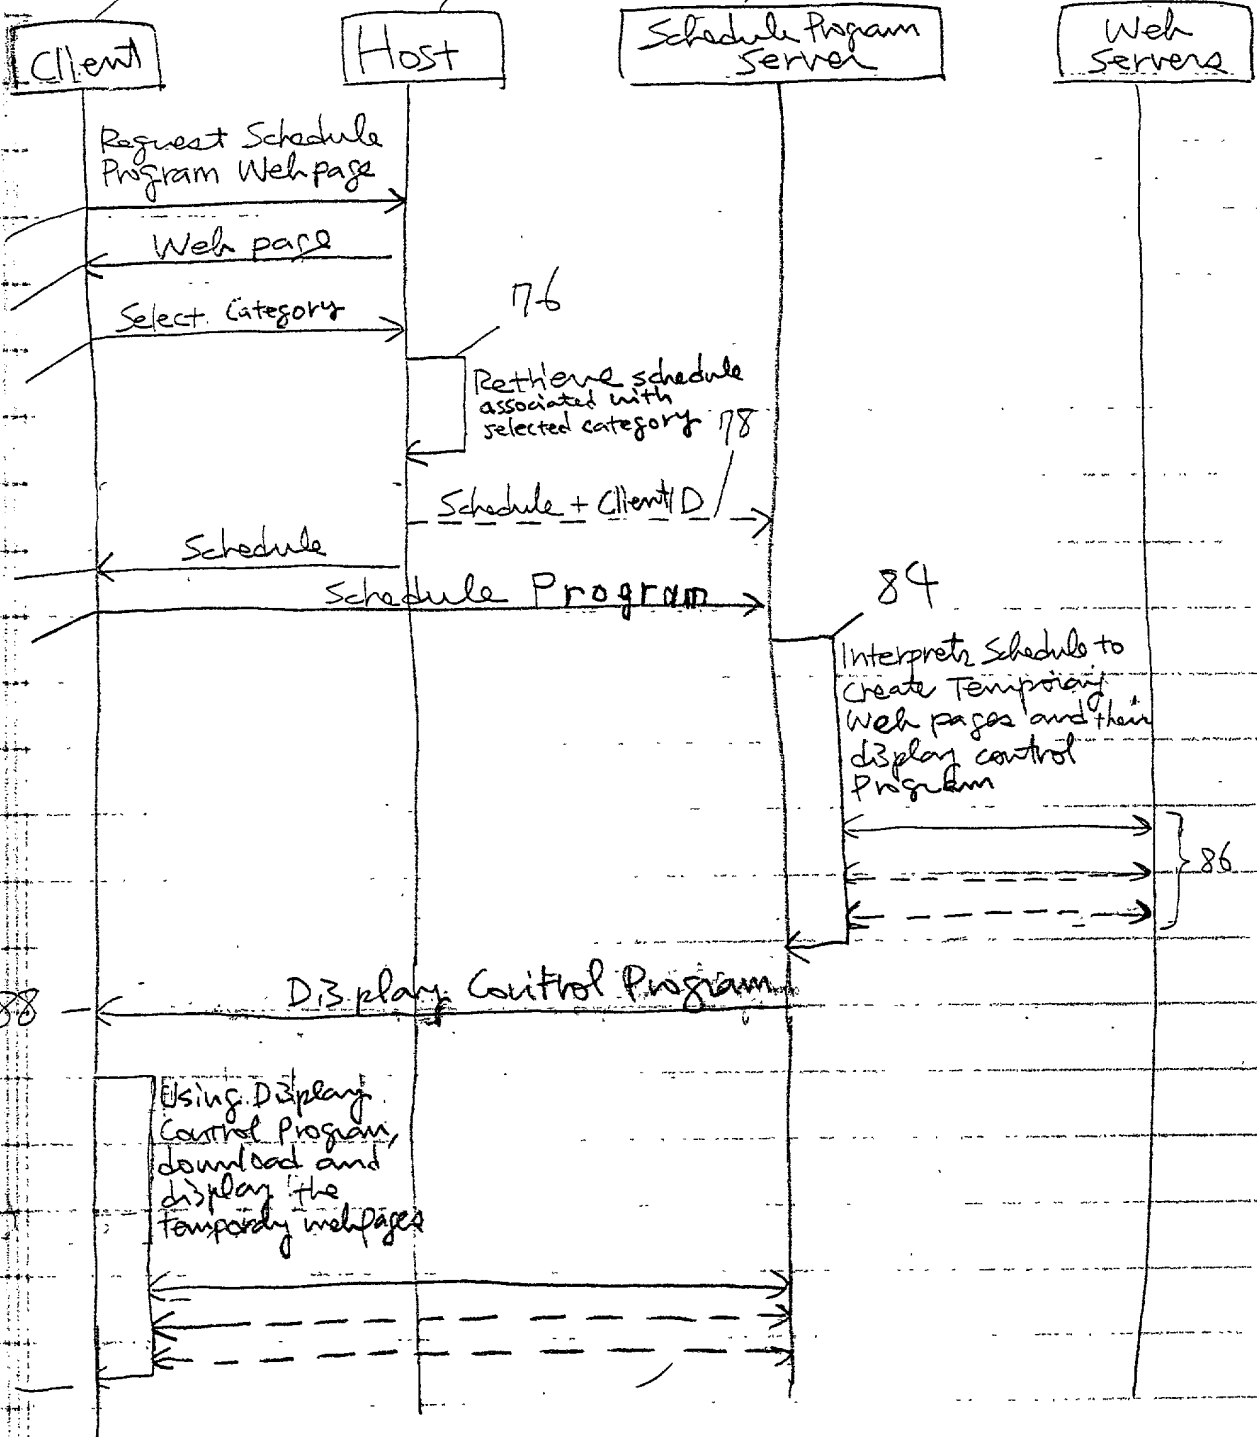 Client
Host
Schedule Program
Server
Web
Servers
Request Schedule
Program Webpage
Web page
Select Category
76
Retrieve schedule
associated with
selected category
78
Schedule + Client ID
Schedule
Schedule Program
84
Interprets Schedule to
create Temporary
Web pages and their
display control
Program
86
Display Control Program
88
Using Display
Control Program,
download and
display the
temporary webpages